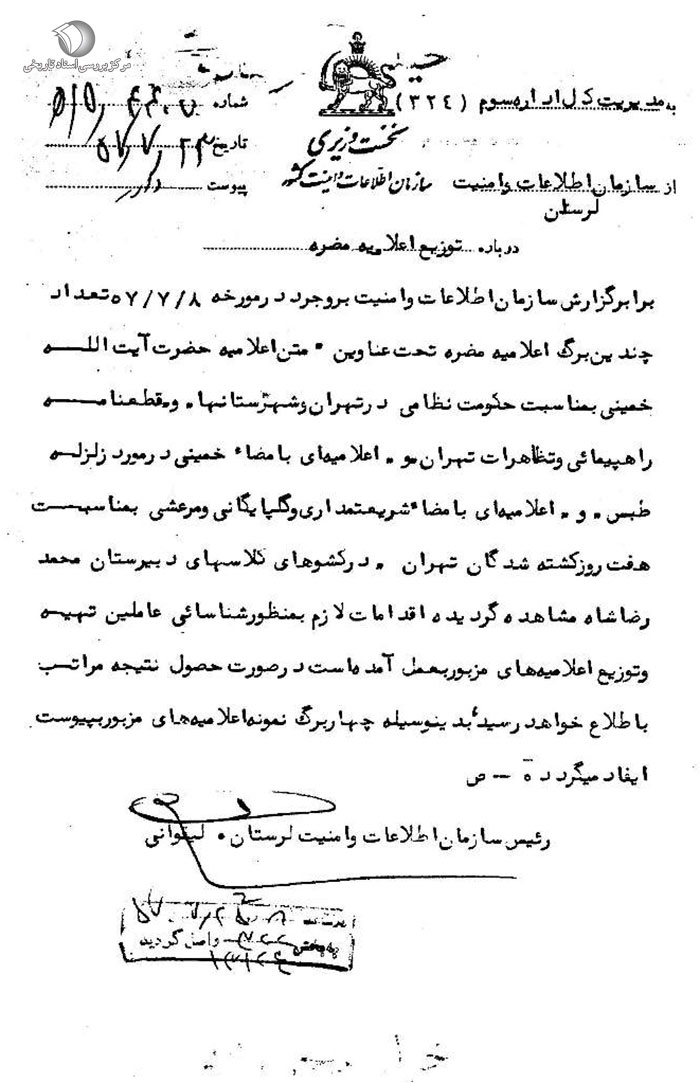 مرکز بررسی اسناد تاریخی
به مدیریت کل اداره سوم (۳۲۴)
شماره
تاریخ ۵۷/۷/۲۳
پیوست دارد
نخست وزیری
سازمان اطلاعات و امنیت کشور
از سازمان اطلاعات وامنیت
لرستان
درباره توزیع اعلامیه مضره
برابرگزارش سازمان اطلاعات وامنیت بروجرد درمورخه ۵۷/۷/۸ تعداد
چندین برگ اعلامیه مضره تحت عناوین • متن اعلامیه حضرت آیت اللــه
خمینی بمناسبت حکومت نظامی درتهران وشهرستانها. وـ قطعنامــه
راهپیمائی وتظاهرات تهران.و. اعلامیه‌ای بامضاء خمینی درمورد زلزلــه
طبس. و. اعلامیه‌ای بامضاء شریعتمداری وگلپایگانی ومرعشی بمناسبــت
هفت روزکشته شدگان تهران . درکشوهای کلاسهای دبیرستان محمد
رضاشاه مشاهده گردیده اقدامات لازم بمنظورشناسائی عاملین تهیــه
وتوزیع اعلامیه‌های مزبوربعمل آمده‌است درصورت حصول نتیجه مراتــب
باطلاع خواهدرسید بدینوسیله چهاربرگ نمونه‌اعلامیه‌های مزبوربپیوست
ایفاد میگردد ه ـ ص
رئیس سازمان اطلاعات وامنیت لرستان . لیقوانی
به بخش ۳۲۲ واصل گردید